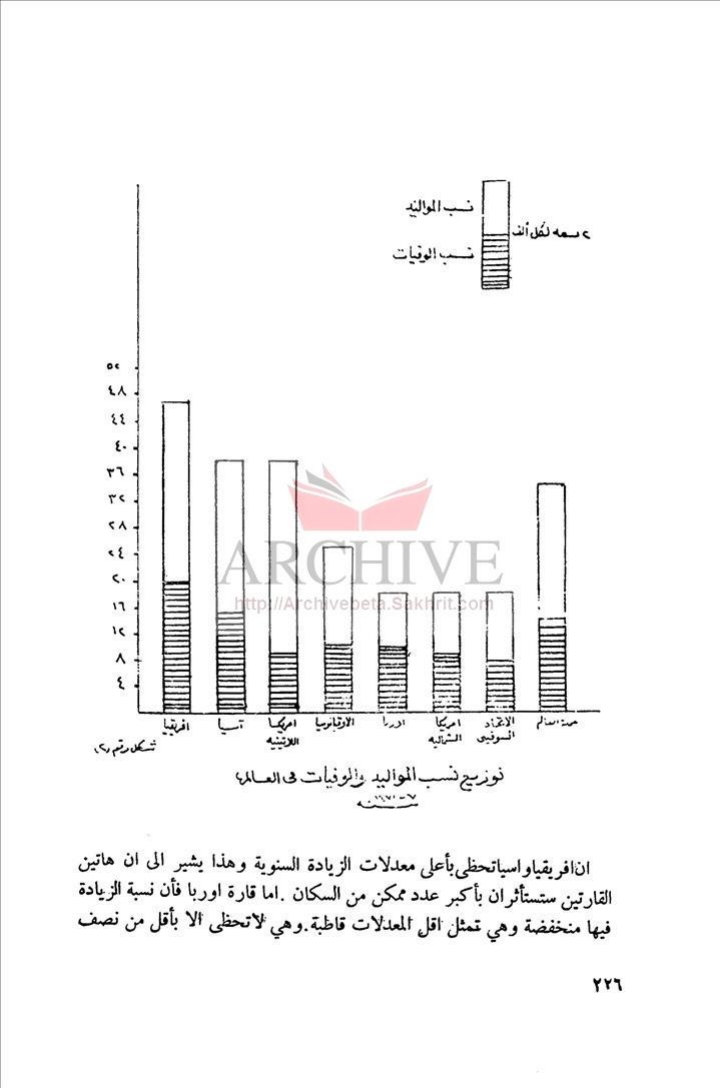 نسب المواليد
لكل ألف
نسب الوفيات
٥٢
٤٨
٤٤
٤٠
٣٦
٣٢
٢٨
٢٤
٢٠
١٦
١٢
٨
٤
ARCHIVE
http://Archivebeta.Sakhrit.com
افريقيا
آسيا
امريكا اللاتينيه
الاوقيانوسيا
اوربا
امريكا الشماليه
الاتحاد السوفيي
العالم
شكل رقم (٢)
توزيع نسب المواليد والوفيات في العالم
سنة
ان افريقيا واسيا تحظى بأعلى معدلات الزيادة السنوية وهذا يشير الى ان هاتين
القارتين ستستأثران بأكبر عدد ممكن من السكان . اما قارة اوربا فأن نسبة الزيادة
فيها منخفضة وهي تمثل اقل المعدلات قاطبة. وهي لاتحظى الا بأقل من نصف
٢٢٦